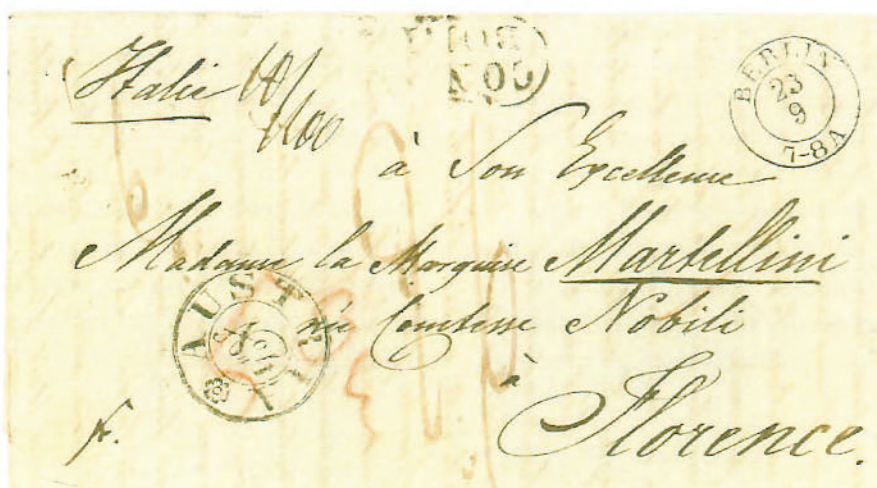 Italie
BERLIN
23
9
7-8A
à Son Excellence
Madame la Marquise Martellini
née Comtesse Nobili
à
Florence.
fr.